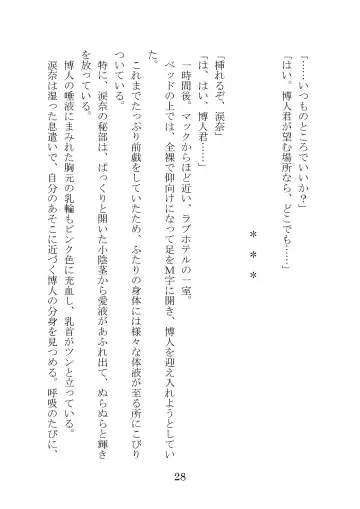 「……いつものところでいいか？」
「はい。博人君が望む場所なら、どこでも……」
＊＊＊
「挿れるぞ、涙奈」
「は、はい、博人君……」
一時間後。マックからほど近い、ラブホテルの一室。
ベッドの上では、全裸で仰向けになって足をM字に開き、博人を迎え入れようとしてい
た。
これまでたっぷり前戯をしていたため、ふたりの身体には様々な体液が至る所にこびり
ついている。
特に、涙奈の秘部は、ぱっくりと開いた小陰茎から愛液があふれ出て、ぬらぬらと輝き
を放っている。
博人の唾液にまみれた胸元の乳輪もピンク色に充血し、乳首がツンと立っている。
涙奈は湿った息遣いで、自分のあそこに近づく博人の分身を見つめる。呼吸のたびに、
28